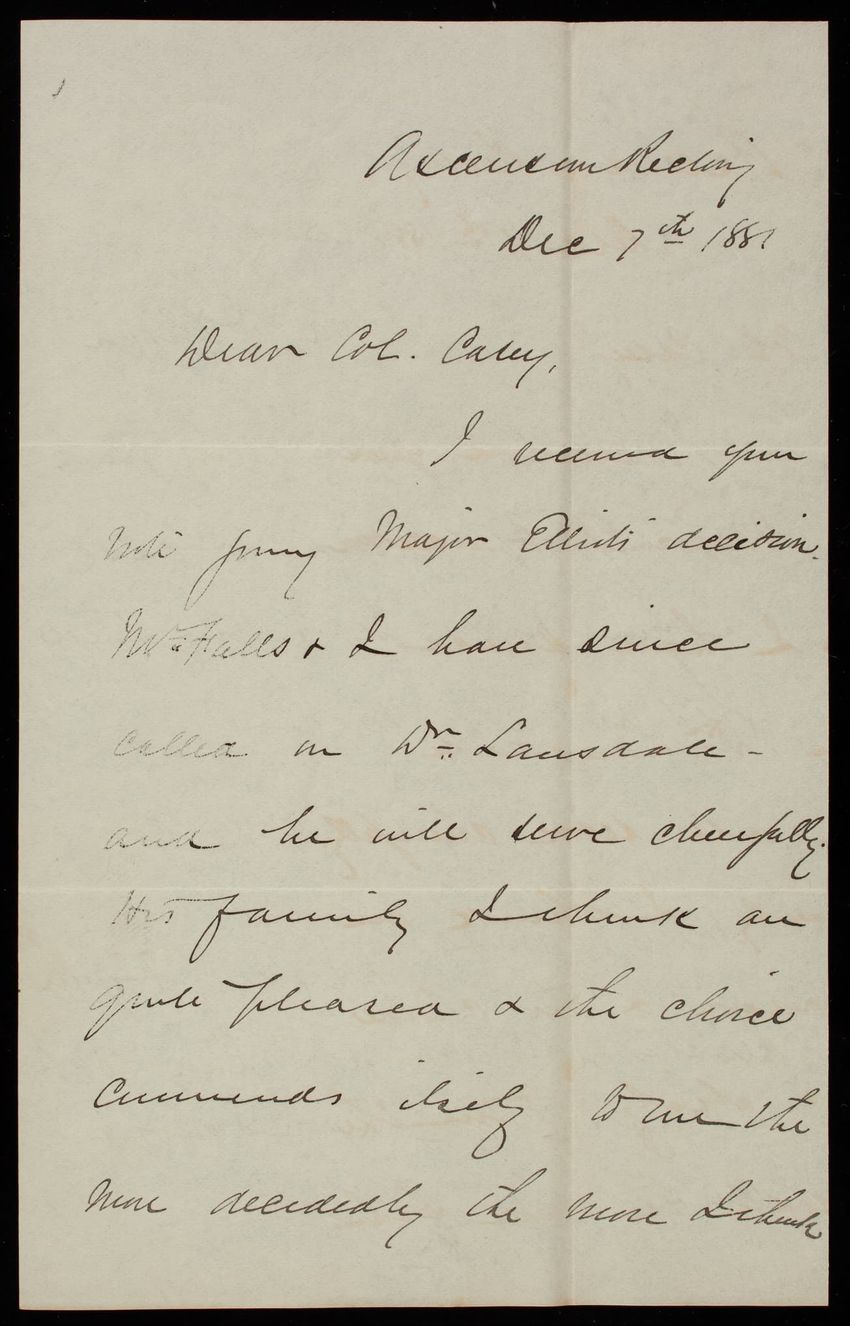 Ascension Rectory
Dec 7th 1881
Dear Col. Casey,
I received your
note giving Major Elliots decision.
Mr Falls & I have since
called on Dr. Lansdale -
and he will serve cheerfully.
His family I think are
quite pleased & the choice
commends itself to me the
more decidedly the more I think